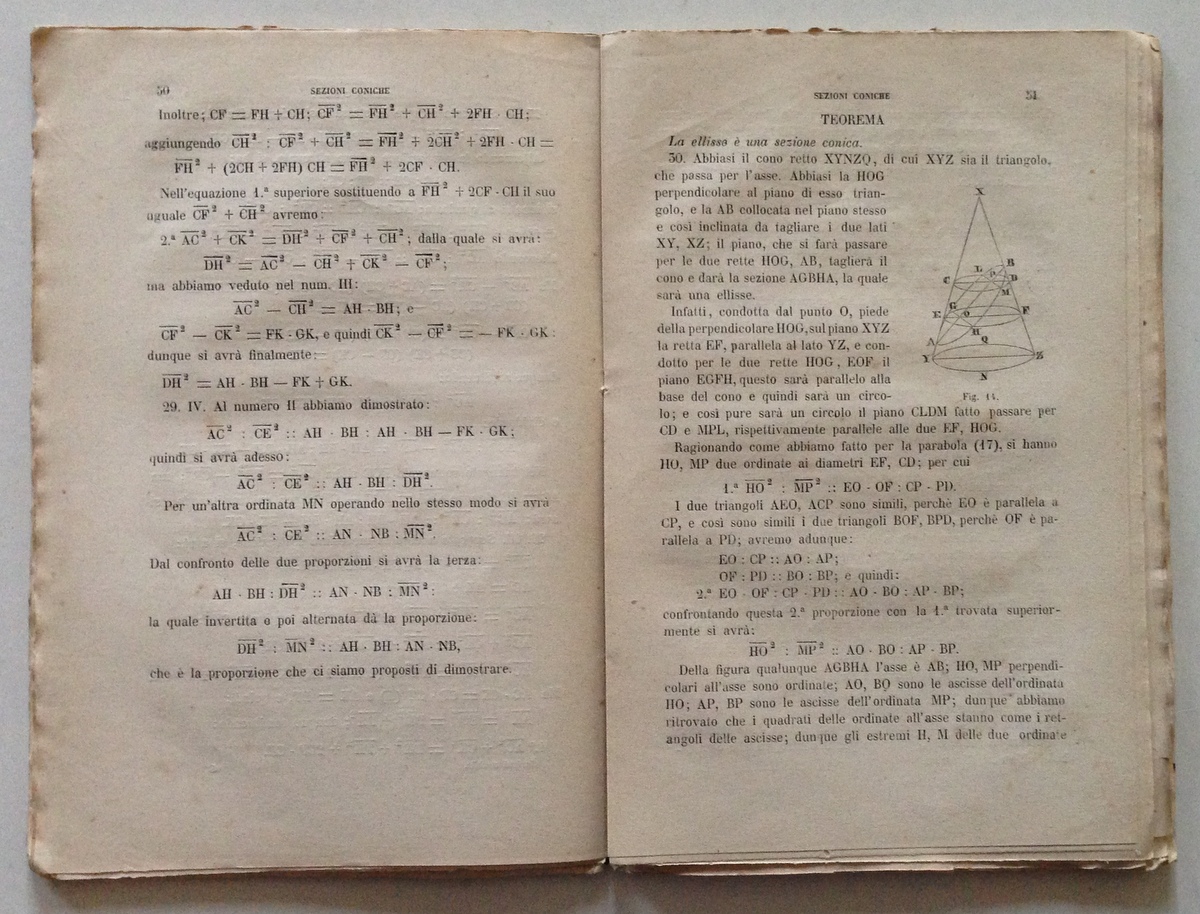 50
SEZIONI CONICHE
Inoltre; CF = FH + CH; CF² = FH² + CH² + 2FH · CH;
aggiungendo CH² : CF² + CH² = FH² + 2CH² + 2FH · CH =
FH² + (2CH + 2FH) CH = FH² + 2CF · CH.
Nell'equazione 1.ª superiore sostituendo a FH² + 2CF · CH il suo
uguale CF² + CH² avremo:
2.ª AC² + CK² = DH² + CF² + CH²; dalla quale si avrà:
DH² = AC² — CH² + CK² — CF²;
ma abbiamo veduto nel num. III:
AC² — CH² = AH · BH; e
CF² — CK² = FK · GK, e quindi CK² — CF² = — FK · GK:
dunque si avrà finalmente:
DH² = AH · BH — FK + GK.
29. IV. Al numero II abbiamo dimostrato:
AC² : CE² :: AH · BH : AH · BH — FK · GK;
quindi si avrà adesso:
AC² : CE² :: AH · BH : DH².
Per un'altra ordinata MN operando nello stesso modo si avrà
AC² : CE² :: AN · NB : MN².
Dal confronto delle due proporzioni si avrà la terza:
AH · BH : DH² :: AN · NB : MN²:
la quale invertita e poi alternata dà la proporzione:
DH² : MN² :: AH · BH : AN · NB,
che è la proporzione che ci siamo proposti di dimostrare.
SEZIONI CONICHE
51
TEOREMA
La ellisse è una sezione conica.
30. Abbiasi il cono retto XYNZQ, di cui XYZ sia il triangolo,
che passa per l'asse. Abbiasi la HOG
perpendicolare al piano di esso trian-
golo, e la AB collocata nel piano stesso
e così inclinata da tagliare i due lati
XY, XZ; il piano, che si farà passare
per le due rette HOG, AB, taglierà il
cono e darà la sezione AGBHA, la quale
sarà una ellisse.
Infatti, condotta dal punto O, piede
della perpendicolare HOG, sul piano XYZ
la retta EF, parallela al lato YZ, e con-
dotto per le due rette HOG, EOF il
piano EGFH, questo sarà parallelo alla
base del cono e quindi sarà un circo-
X
L
P
B
D
C
M
G
O
E
F
H
A
Q
Y
Z
N
Fig. 14.
lo; e così pure sarà un circolo il piano CLDM fatto passare per
CD e MPL, rispettivamente parallele alle due EF, HOG.
Ragionando come abbiamo fatto per la parabola (17), si hanno
HO, MP due ordinate ai diametri EF, CD; per cui
1.ª HO² : MP² :: EO · OF : CP · PD.
I due triangoli AEO, ACP sono simili, perchè EO è parallela a
CP, e così sono simili i due triangoli BOF, BPD, perchè OF è pa-
rallela a PD; avremo adunque:
EO : CP :: AO : AP;
OF : PD :: BO : BP; e quindi:
2.ª EO · OF : CP · PD :: AO · BO : AP · BP;
confrontando questa 2.ª proporzione con la 1.ª trovata superior-
mente si avrà:
HO² : MP² :: AO · BO : AP · BP.
Della figura qualunque AGBHA l'asse è AB; HO, MP perpendi-
colari all'asse sono ordinate; AO, BO sono le ascisse dell'ordinata
HO; AP, BP sono le ascisse dell'ordinata MP; dunque abbiamo
ritrovato che i quadrati delle ordinate all'asse stanno come i ret-
angoli delle ascisse; dunque gli estremi H, M delle due ordinate